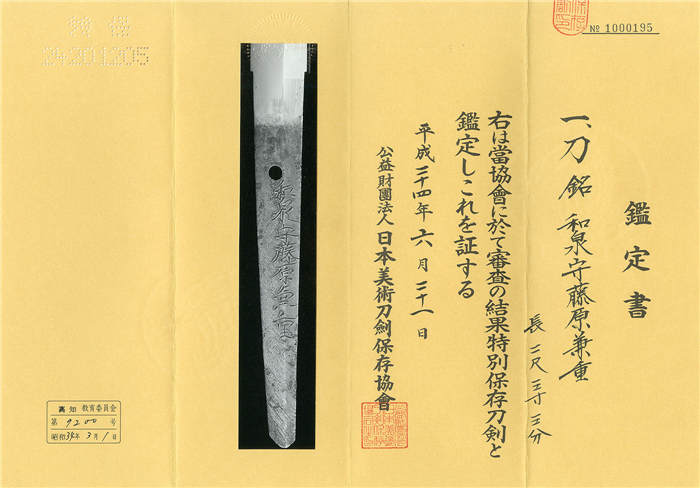 № 1000195
鑑定書
一、刀 銘 和泉守藤原兼重
長 二尺三寸三分
右は當協會に於て審査の結果特別保存刀剣と
鑑定しこれを証する
平成二十四年六月二十一日
公益財團法人 日本美術刀劍保存協會
和泉守藤原兼重
高知 教育委員会
第 9200 号
昭和34年3月1日